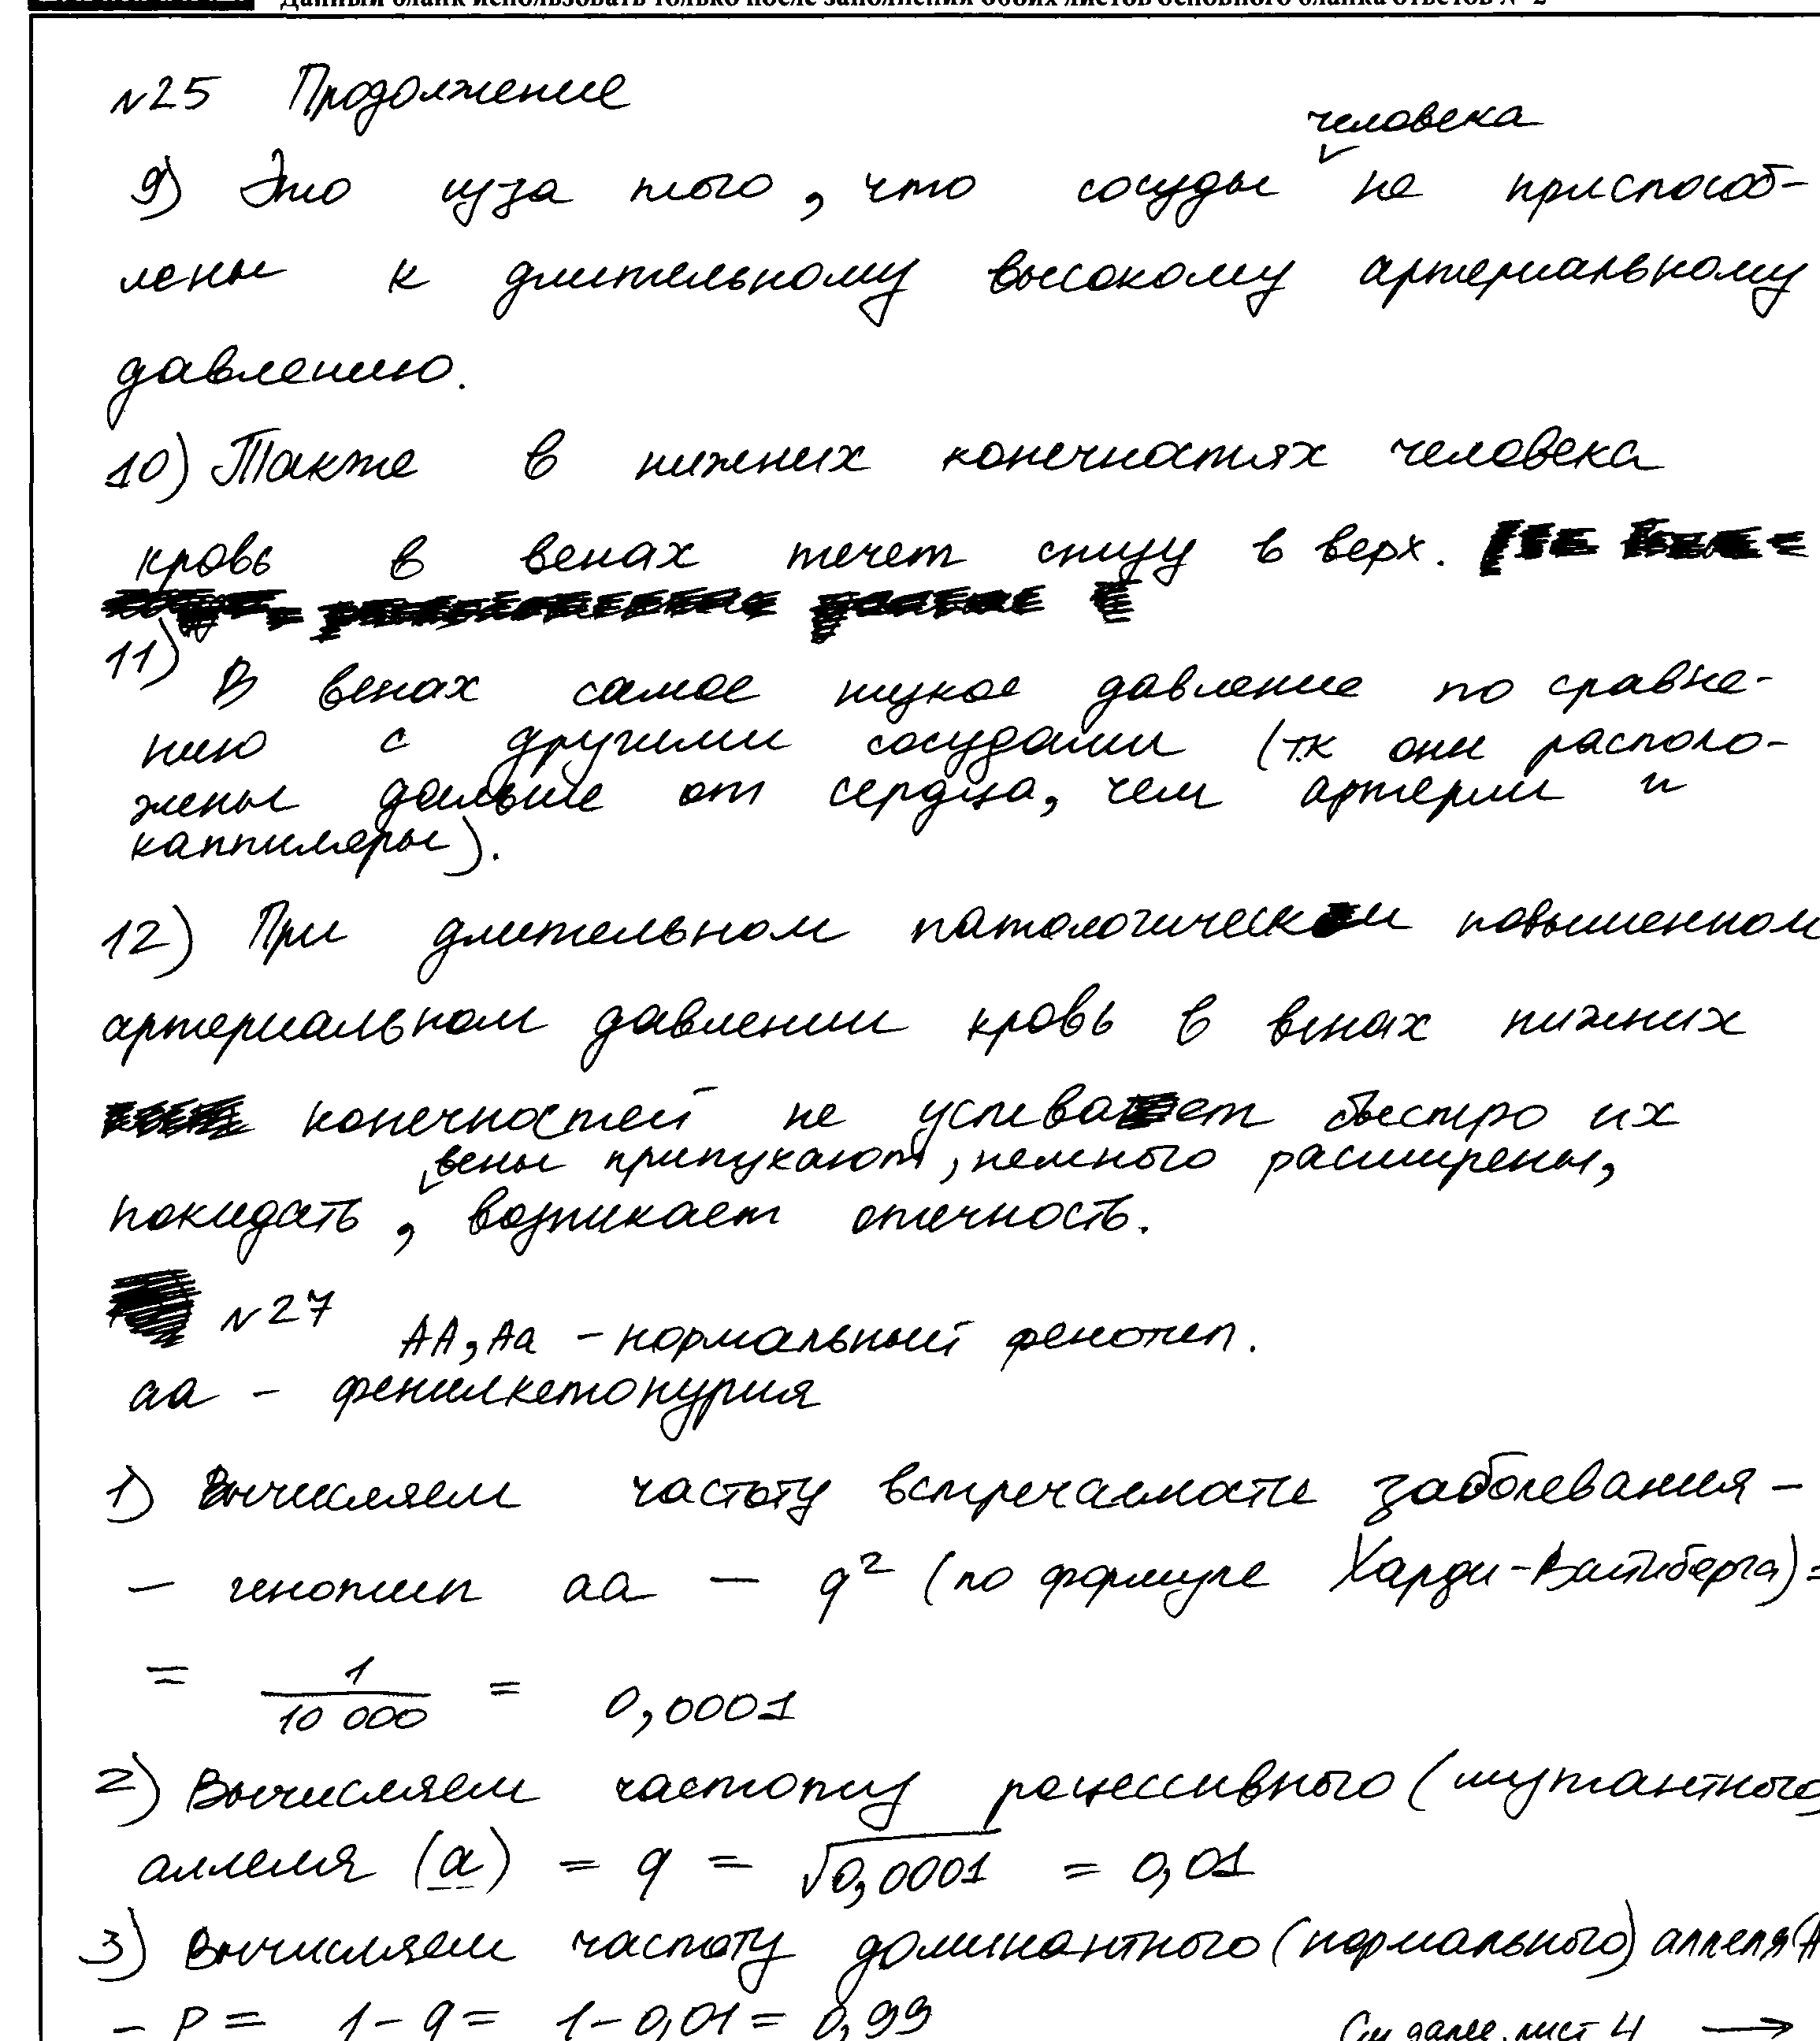 Данный бланк использовать только после заполнения обоих листов основного бланка ответов № 2
№25 Продолжение
человека
9) Это изза того, что сосуды не приспособ-
лены к длительному высокому артериальному
давлению.
10) Также в нижних конечностях человека
кровь в венах течет снизу в верх.
11) В венах самое низкое давление по сравне-
нию с другими сосудами (тк они располо-
жены дальше от сердца, чем артерии и
каппиляры).
12) При длительном патологически повышенном
артериальном давлении кровь в венах нижних
конечностей не успевает быстро их
вены припухают, немного расширены,
покидать, возникает отечность.
№27 AA, Aa - нормальный фенотип.
aa - фенилкетонурия
1) Вычисляем частоту встречаемости заболевания -
- генотип aa - q² (по формуле Харди-Вайнберга) =
= 1/10 000 = 0,0001
2) Вычисляем частоту рецессивного (мутантного)
аллеля (a) = q = √0,0001 = 0,01
3) Вычисляем частоту доминантного (нормального) аллеля (A
- p = 1-q = 1-0,01 = 0,99
См далее лист 4 →